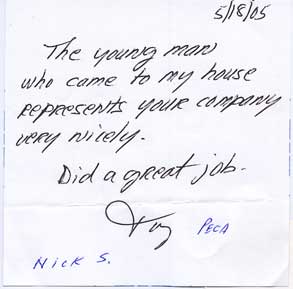 5/18/05
The young man
who came to my house
represents your company
very nicely.
Did a great job.
PECA
Nick S.